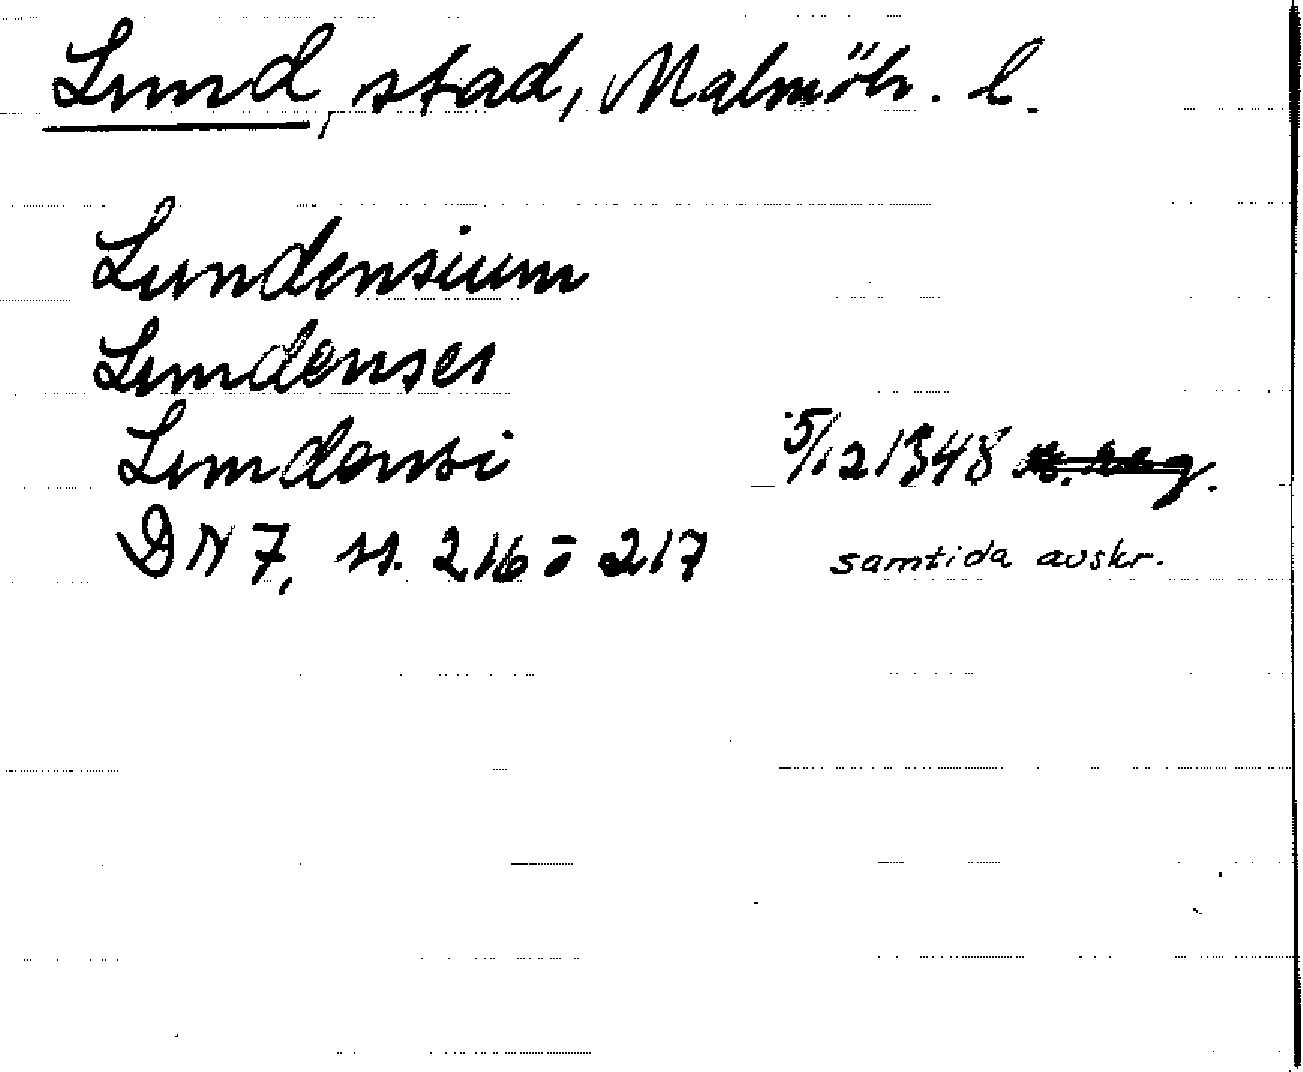 Lund, stad, Malmöh. l.
Lundensium
Lundenses
Lundensi 5/12 1348
DN 7, s. 216 o 217 samtida avskr.